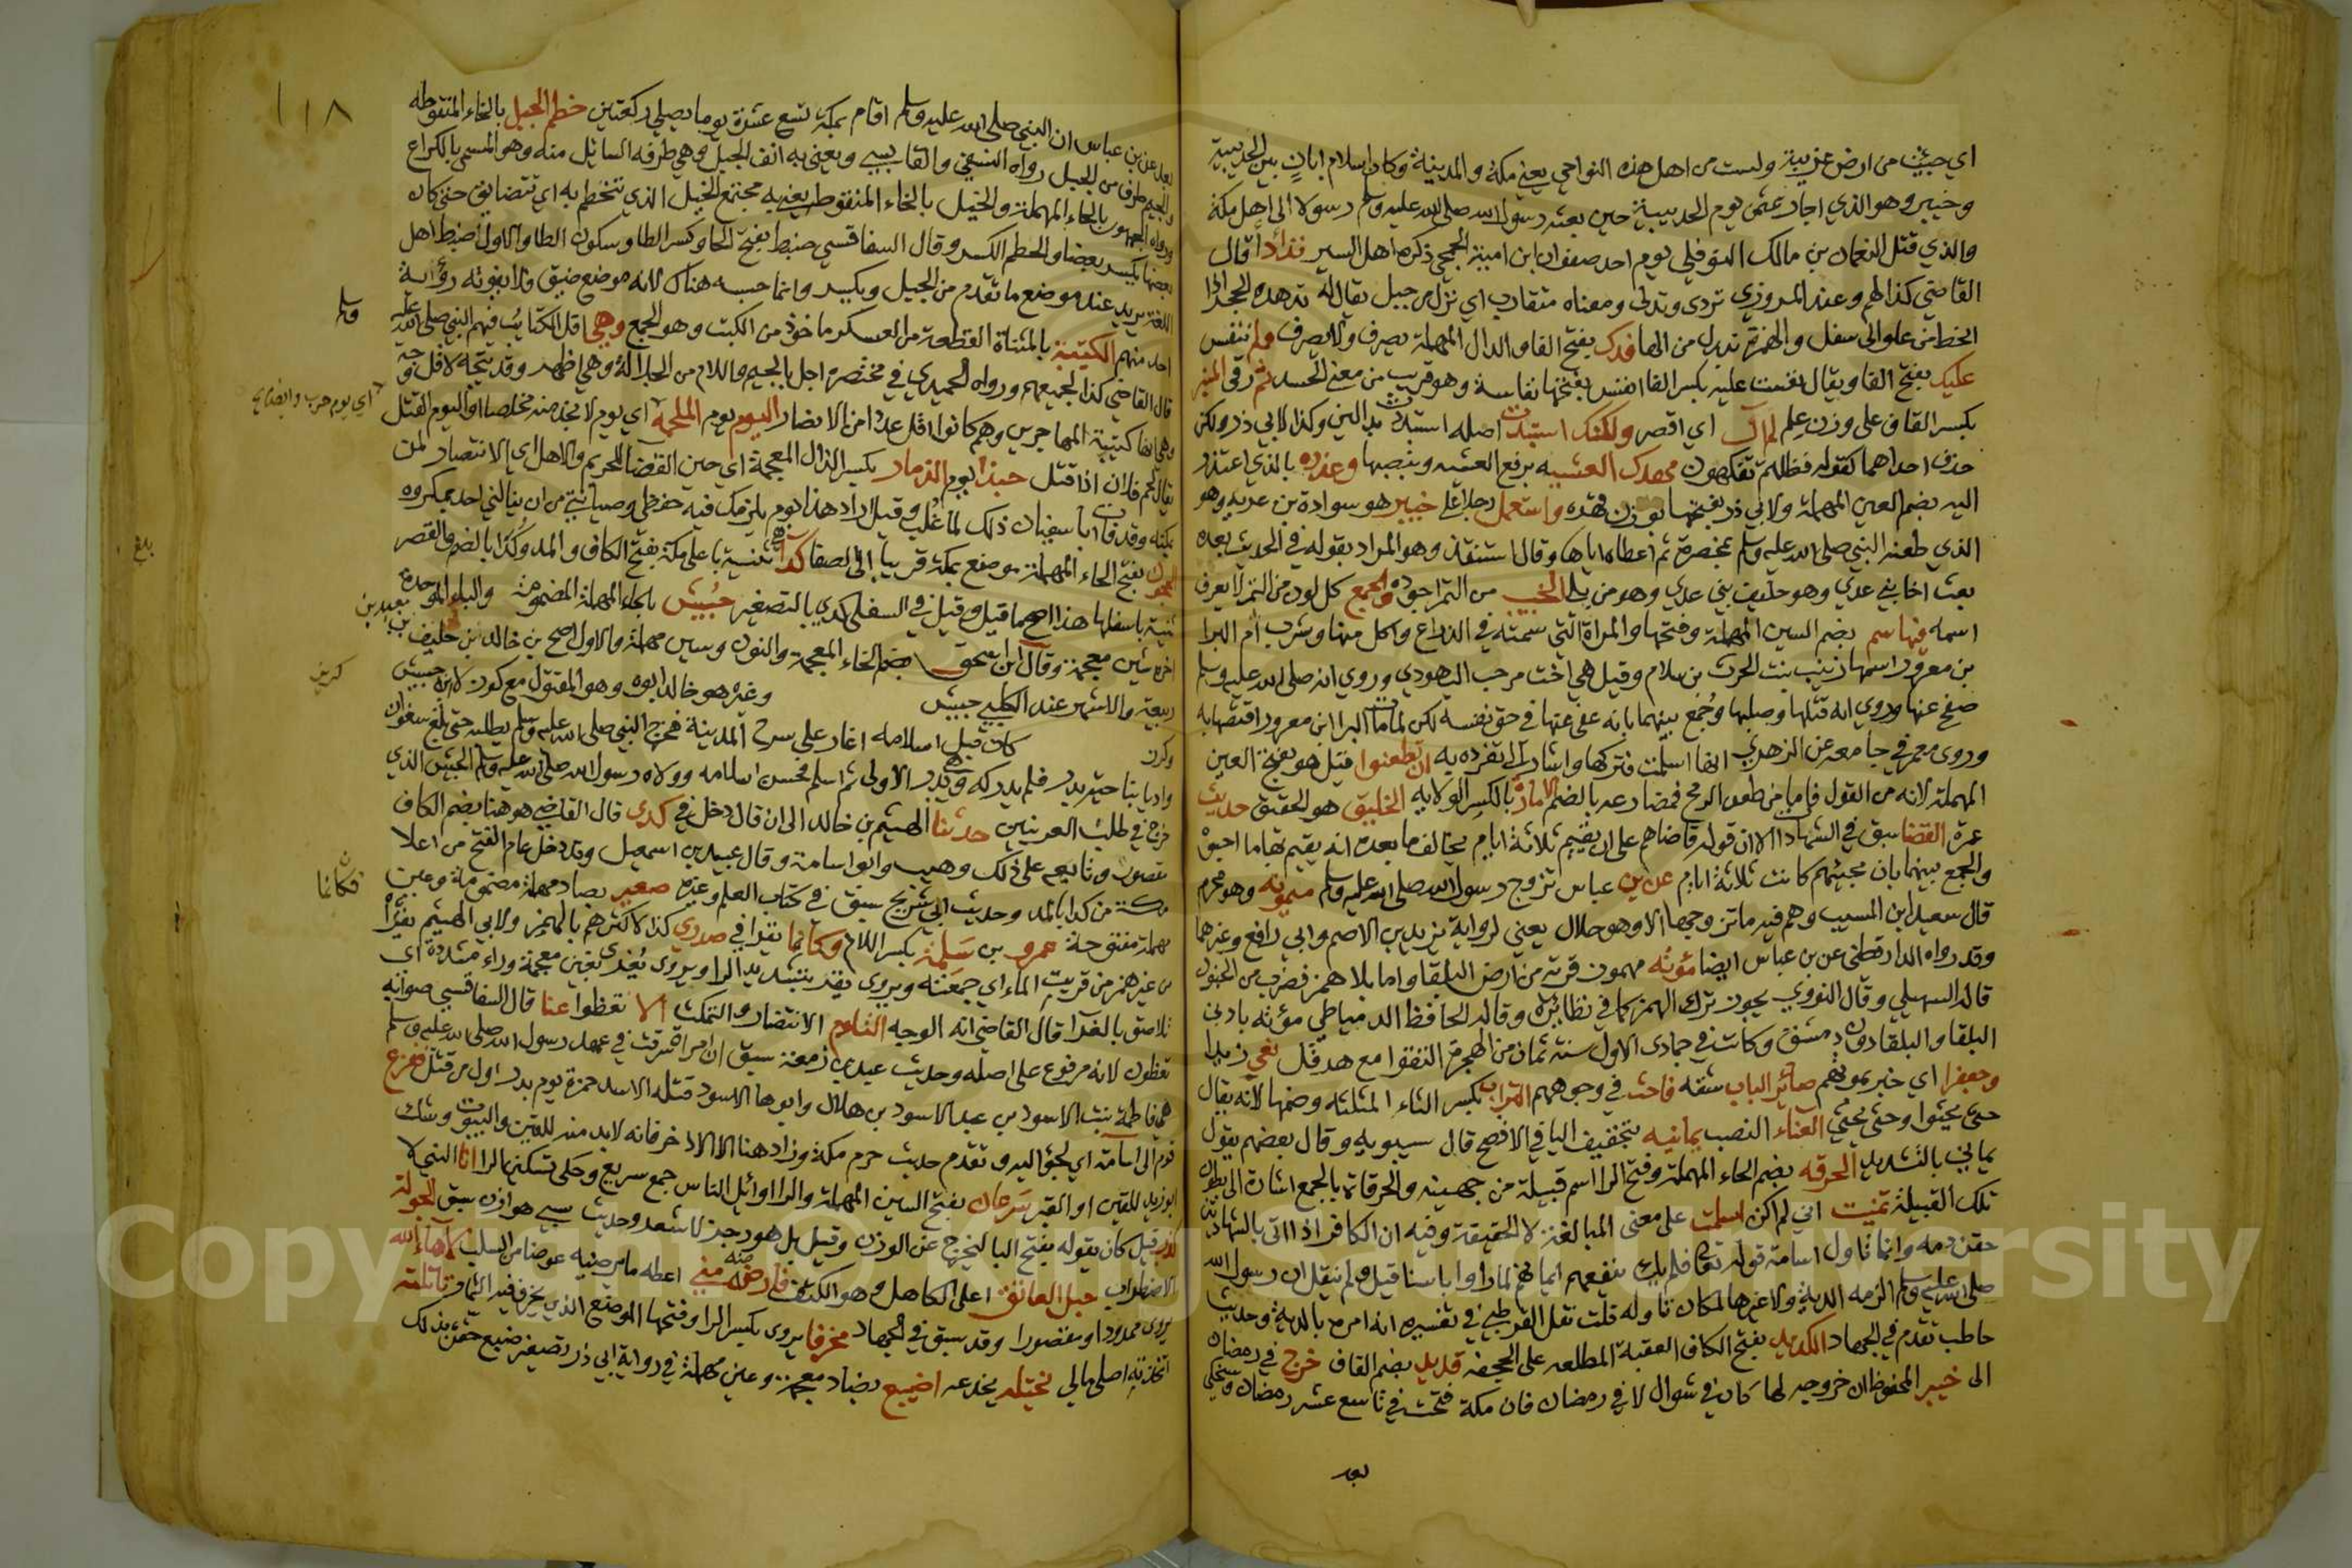 اي جيئت من ارض غريبة ولست من اهل هذه النواحي يعني مكة والمدينة وكان اسلام ابان بين الحديبية
وخيبر وهو الذي اجار عثمن يوم الحديبية حين بعثه رسول الله صلى الله عليه وسلم رسولا الى اهل مكة
والذي قتل النعمان بن مالك القوقلي يوم احد صفوان ابن امية الجمحي ذكره اهل السير تدأدأ قال
القاضي كذا لهم وعند المروزي تردى وتدلى ومعناه متقارب اي نزل من جبل يقال له تدهده الحجر اذا
انحط من علو الى سفل والهمزة تبدل من الها فدك بفتح الفا والدال المهملة يصرف ولا يصرف ولم ننفس
عليك بفتح الفا ويقال نفست عليه بكسر الفا انفس بفتحها نفاسة وهو قريب من معنى الحسد ثم رقى المنبر
بكسر القاف على وزن علم لم آل اي اقصر ولكنك استبدت اصله استبددت بدالين وكذا لابي ذر ولكن
حذف احداهما كقوله فظلتم تفكهون موعدك العشيه برفع العشيه ونصبها وعذره بالذي اعتذر
اليه بضم العين المهملة ولابي ذر بفتحها واستعمل رجلا على خيبر هو سوادة بن غزية وهو
الذي طعنه النبي صلى الله عليه وسلم بمخصرة ثم اعطاه اياها وقال استنقذ وهو المراد بقوله في الحديث بعده
بعث اخا بني عدي وهو حليف بني عدي وهو من بلي الجنيب من التمر اجوده والجمع كل لون من التمر لا يعرف
اسمه فيها سم بضم السين المهملة وفتحها والمراة التي سمته في الذراع واكل منها وشرب ام البرا
بن معرور اسمها زينب بنت الحرث بن سلام وقيل هي اخت مرحب اليهودي وروي انه صلى الله عليه وسلم
صفح عنها وروي انه قتلها وصلبها وجمع بينهما بانه عفى عنها في حق نفسه لكن لما مات البرا ابن معرور اقتصها به
وروى معمر في جامعه عن الزهري انها اسلمت فتركها واشار الى تفرده به ان تطعنوا قيل هو بفتح العين
المهملة لانه من القول فاما من طعن الرمح فمضارعه بالضم الامارة بالكسر الولايه الخليق هو الحقيق حديث
عمرة القضا سبق في الشهادا الا ان قوله قاضاهم على ان يقيم ثلاثة ايام يخالف ما بعده انه يقيم بها ما احبوا
والجمع بينهما بان مجيئهم كانت ثلاثة ايام عن بن عباس تزوج رسول الله صلى الله عليه وسلم ميمونه وهو محرم
قال سعيد ابن المسيب وهم فيه ما تزوجها الا وهو حلال يعني لرواية يزيد بن الاصم وابي رافع وغيرهما
وقد رواه الدارقطني عن بن عباس ايضا مؤته مهموز قرية من ارض البلقا واما بلا همز فضرب من الجنون
قاله السهيلي وقال النووي يجوز ترك الهمز كما في نظائره وقاله الحافظ الدمياطي مؤته بادنى
البلقا والبلقا دون دمشق وكانت في جمادى الاول سنة ثمان من الهجرة التقوا مع هرقل نعى زيدا
وجعفرا اي خبر بموتهم صائر الباب شقه فاحث في وجوههم التراب بكسر الثاء المثلثه وضمها لانه يقال
حثى يحثوا وحثى يحثي العناء النصب يمانيه بتخفيف اليا في الافصح قال سيبويه وقال بعضهم يقول
يماني بالتشديد الحرقه بضم الحاء المهملة وفتح الرا اسم قبيلة من جهينه والحرقات بالجمع اشارة الى بطون
تلك القبيلة تمنيت اني لم اكن اسلمت على معنى المبالغة لا الحقيقة وفيه ان الكافر اذا اتى بالشهادتين
حقن دمه وانما تاول اسامة قوله تعا فلم يك ينفعهم ايمانهم لما راوا باسنا قيل ولم ينقل ان رسول الله
صلى الله عليه وسلم الزمه الدية ولا غيرها لمكان تاوله قلت نقل القرطبي في تفسيره انه امره بالدية وحديث
حاطب تقدم في الجهاد الكديد بفتح الكاف العقبة المطلعه على الجحفه قديد بضم القاف خرج في رمضان
الى خيبر المحفوظ ان خروجه لها كان في شوال لا في رمضان فان مكة فتحت في تاسع عشر رمضان
بعد
١١٨
بعد عن بن عباس ان النبي صلى الله عليه وسلم اقام بمكة تسع عشرة يوما يصلي ركعتين خطم الجبل بالخاء المنقوطه
والجيم طرف من الجبل رواه النسفي والقابسي ويعني به انف الجبل وهي طرفه السائل منه وهو المسمى بالكراع
ورواه الجمهور بالحاء المهملة والخيل بالخاء المنقوطه يعني به مجتمع الخيل الذي تتحطم به اي تتضايق حتى كان
بعضها يكسر بعضا والحطم الكسر وقال السفاقسي ضبط بفتح الحا وكسر الطا وسكون الطا والاول اضبط اهل
اللغة يريد عند موضع ما تقدم من الجبل ويكسر وانما حبسه هناك لانه موضع ضيق ولا يفوته رؤية
احد منهم الكتيبة بالمثناة القطعة من العسكر ماخوذ من الكتب وهو الجمع وهي اقل الكتايب فيهم النبي صلى الله عليه
وسلم
قال القاضي كذا لجميعهم ورواه الحميدي في مختصره اجل بالجيم واللام من الجلالة وهي اظهر وقد يتجه لاقل وجه
وهي انها كتيبة المهاجرين وهم كانوا اقل عددا من الانصار اليوم يوم الملحمة اي يوم لا يجد منه مخلصا او اليوم القتل
يقال لحم فلان اذا قتل حبذا يوم الذمار بكسر الذال المعجمة اي حين الغضب للحريم والاهل اي الانتصار لمن
اي يوم حرب
بمكة وقد قا ابا سفيان ذلك لما غلب وقيل اراد هذا يوم يلزمك فيه حفظي وصيانتي من ان ينالني احد بمكروه
الحجون بفتح الحاء المهملة موضع بمكة قريبا الى الصفا كداء ثنية باعلى مكة بفتح الكاف والمد وكدا بالضم والقصر
بلغ
ثنية باسفلها هذا اصح ما قيل وقيل في السفلى كدي بالتصغير حبيش بالحاء المهملة المضمومة والباء الموحدة
اخره شين معجمة وقال ابن اسحق بضم الخاء المعجمة والنون وسين مهملة والاول اصح بن خالد بن خليف بن
ربيعة والاشهر عند الكلبي حبيش وغيره هو خالد ابوه وهو المقتول مع كرز لا ابنه حبيش
كرز
وكرز كان قبل اسلامه اغار على سرح المدينة فخرج النبي صلى الله عليه وسلم يطلبه حتى بلغ سفوان
واديا بناحية بدر فلم يدركه وهي بدر الاولى ثم اسلم فحسن اسلامه وولاه رسول الله صلى الله عليه وسلم الجيش الذي
خرج في طلب العرنيين حدثنا الهيثم بن خالد الى ان قال دخل في كدى قال القاضي هو هنا بضم الكاف
مقصور وتابعه على ذلك وهيب وابو اسامة وقال عبيد بن اسمعيل وقد دخل عام الفتح من اعلا
مكة من كدا بالمد وحديث ابي شريح سبق في كتاب العلم وغيره صعير بصاد مهملة مضمومة وعين
فكانما
مهملة مفتوحة عمرو بن سلمة بكسر اللام وكانما يقرا في صدري كذا لاكثرهم بالهمز ولابي الهيثم يقرى
من غير همز من قريت الماء اي جمعته ويروى يقر بتشديد الرا ويروى يغرى بغين معجمة وراء مشددة اي
تلاصق بالغرا قال القاضي انه الوجه التلوم الانتظار والتمكث الا تغطوا عنا قال السفاقسي صوابه
تغطون لانه مرفوع على اصله وحديث عبد بن زمعة سبق ان امراة سرقت في عهد رسول الله صلى الله عليه وسلم
هي فاطمة بنت الاسود بن عبد الاسود بن هلال وابوها الاسود قتله الاسد حمزة يوم بدر اول من قتل ففزع
قومها الى اسامة اي لجؤا اليه وتقدم حديث حرم مكة وزاد هنا الا الاذخر فانه لابد منه للقين والبيوت وشك
ابو زيد للقين او القبر سرعان بفتح السين المهملة والرا اوائل الناس جمع سريع وحكى تسكينها الرا انا النبي لا
كذب قيل كان يقوله بفتح البا ليخرج عن الوزن وقيل بل هو رجز لا شعر وحديث سبي هوازن سبق الجولة
الاضطراب حبل العاتق اعلى الكاهل وهو الكتف فارضه منه مني اعطه ما يرضيه عوضا من السلب لاهاء الله
يروى ممدودا ومقصورا وقد سبق في الجهاد مخرفا يروى بكسر الرا وفتحها الموضع الذي يخرف فيه الثمار تاثلته
اتخذته اصل مالي نختله يخدعه اضيبع بضاد معجمة وعين مهملة في رواية ابي ذر تصغير ضبع حقره بذلك